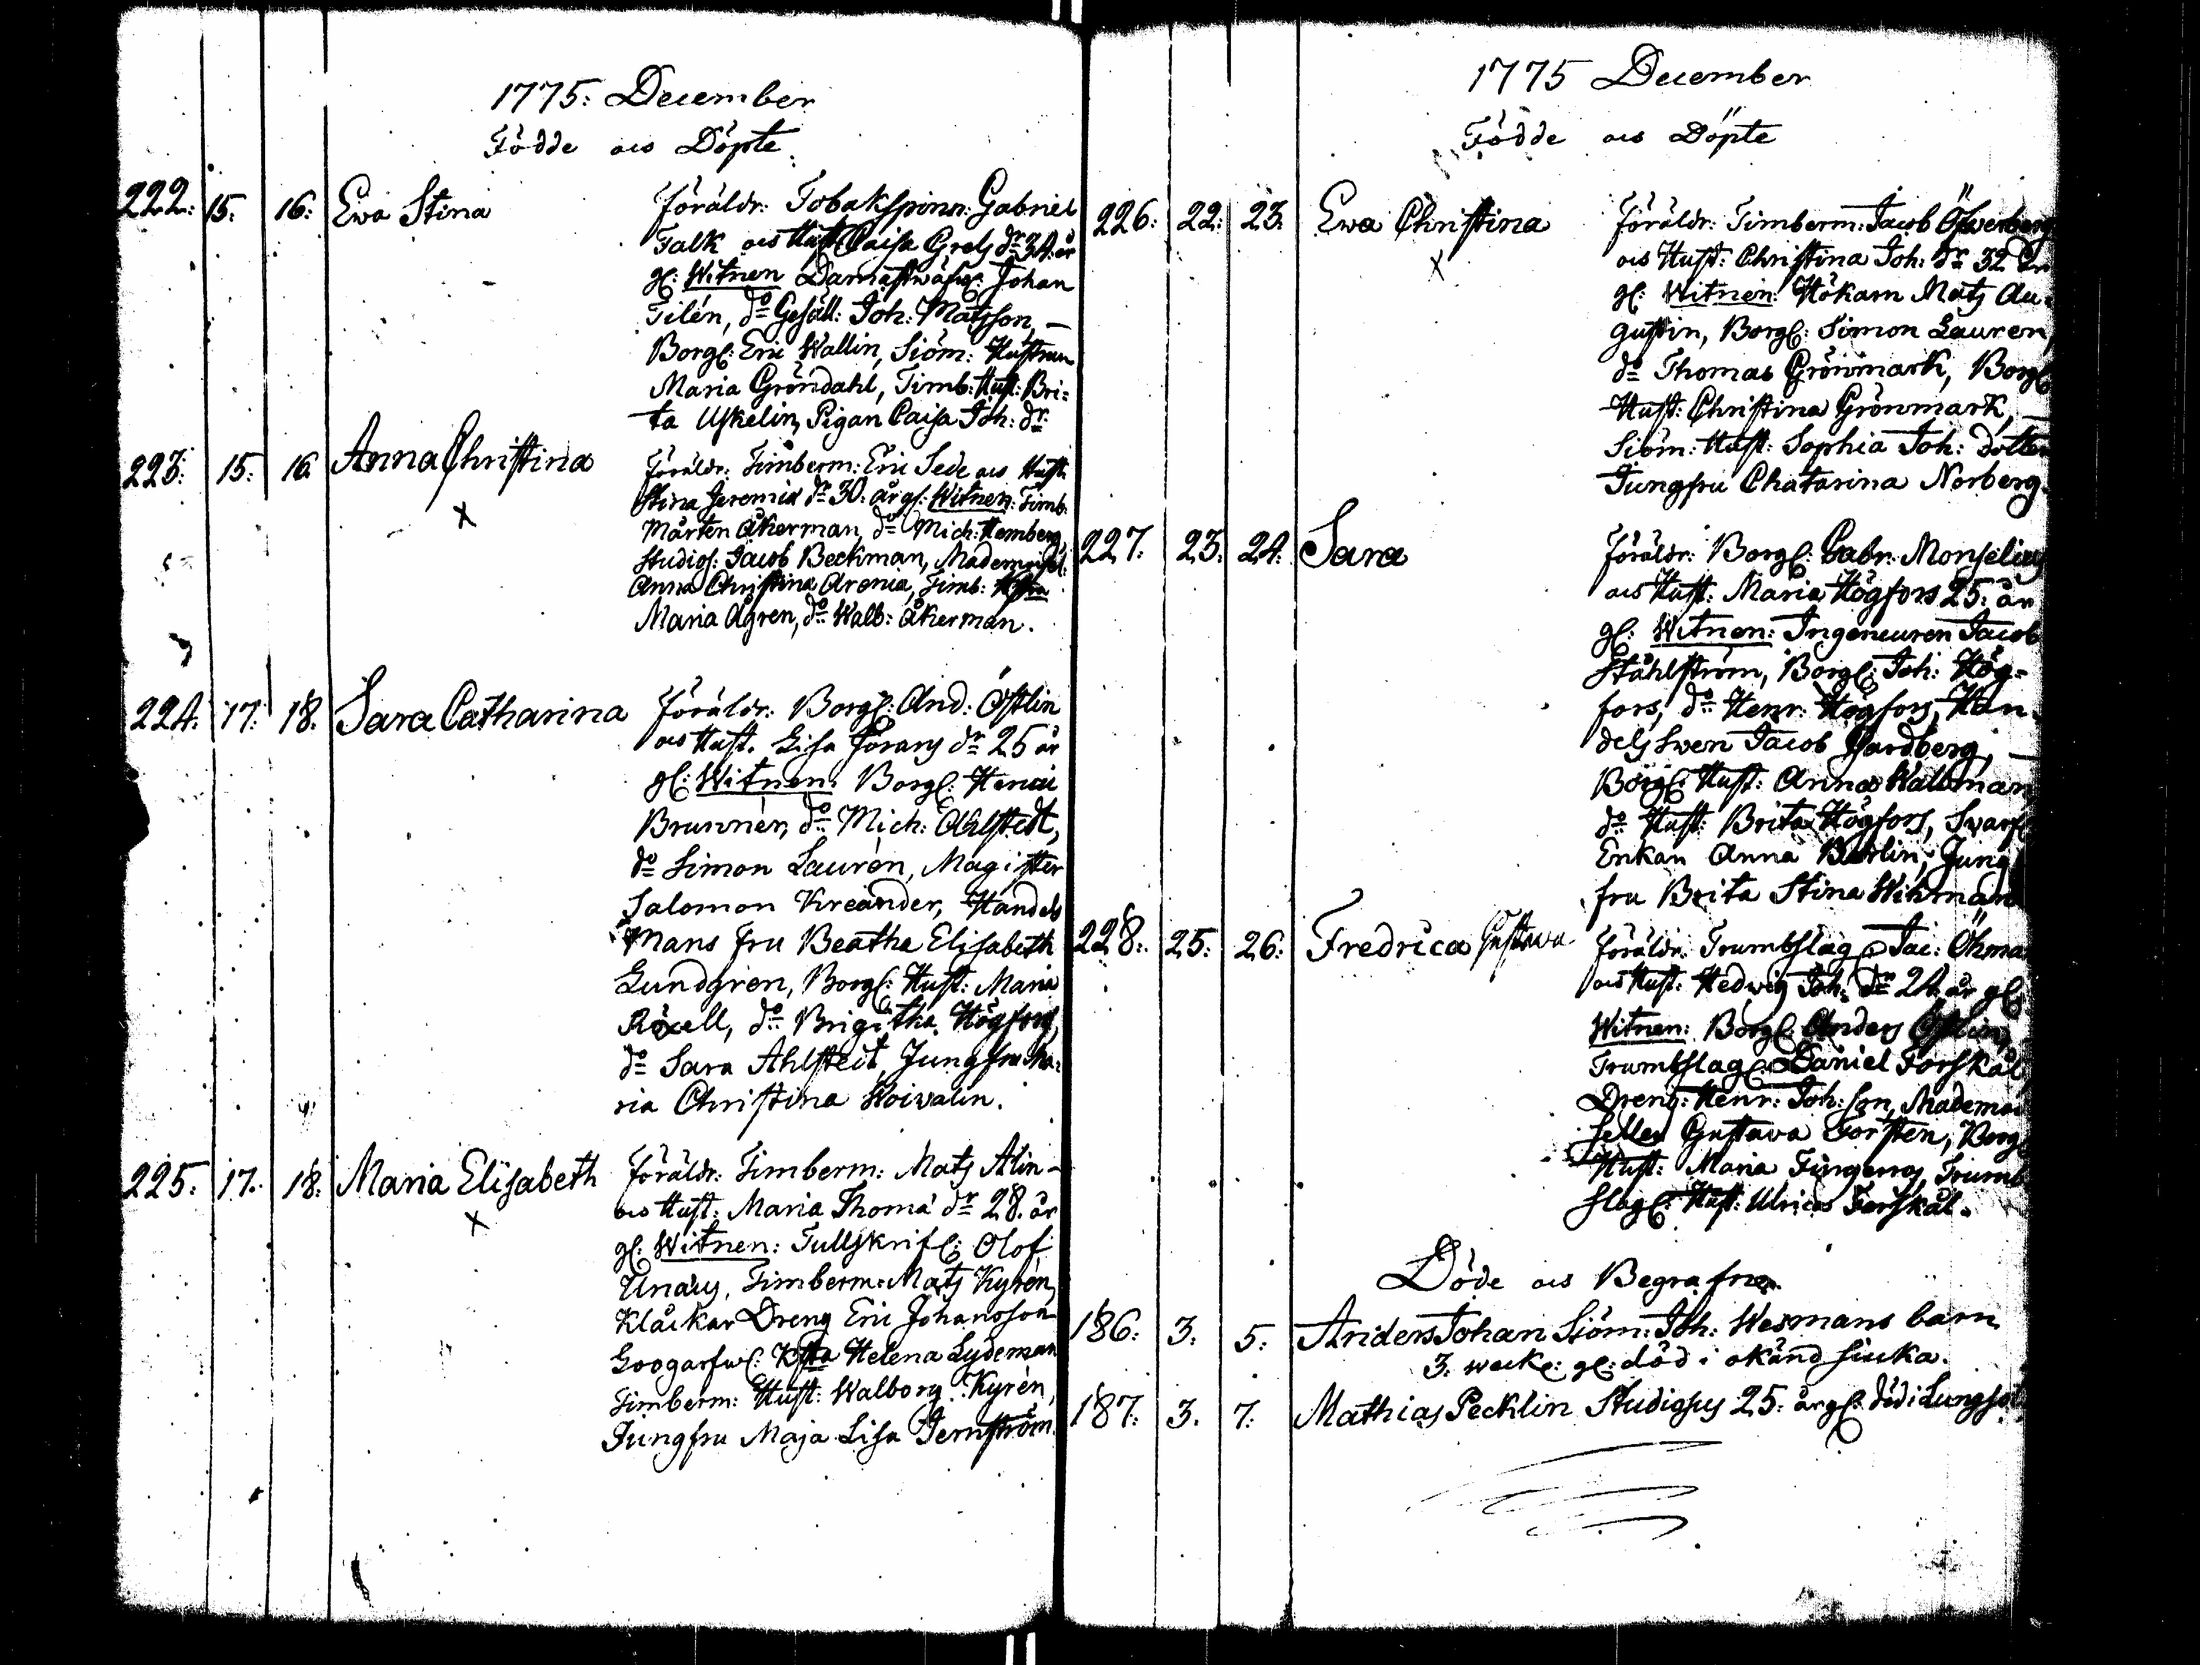 1775: December
Födde och Döpte
222. 15. 16: Ewa Stina föräldr: Tobakspinn: Gabriel
Falk och Hust: Caisa Grels dr 34. år
gl: Witnen Damastwäfw: Johan
Tilén, do Gesäll: Joh: Matsson,
Borgl: Eric Wallin, Siöm: Hustrun
Maria Gröndahl, Timb: Hust: Bri=
ta Uskelin, Pigan Caisa Joh: dr
223: 15: 16 Anna Christina föräldr: Timberm: Eric Sede och Hust:
x Stina Jeremiæ dr 30. år gl: Witnen: Timb.
Mårten Åkerman, do Mich: Hemberg,
Studios: Jacob Beckman, Mademoisel:
Anna Christina Arenia, Timb:
Maria Ågren, do Walb: Åkerman.
224. 17: 18. Sara Catharina föräldr: Borgl: And: Östlin
och Hust. Lisa Jörans dr 25 år
gl: Witnen. Borgl: Henric
Brunnér, do Mich: Ahlstedt,
do Simon Laurén, Magister
Salomon Kreander, Handels
Mans fru Beatha Elisabeth
Lundgren, Borgl: Hust: Maria
Röxell, do Brigitha Högfors,
do Sara Ahlstedt, Jungfru Ma-
ria Christina Woivalin.
225. 17. 18: Maria Elisabeth föräldr: Timberm: Mats Alin
x och Hust: Maria Thomæ dr 28. år
gl: Witnen: Tullskrif: Olof
Unæus, Timberm: Mats Kyrén,
Klåckar Dreng Eric Johansson
Helena Lydeman
Timberm: Hust: Walborg Kyrén,
Jungfru Maja Lisa Jernström.
1775 December
Födde och Döpte
226: 22: 23. Ewa Christina föräldr: Timberm: Jacob Öfwerberg
x och Hust: Christina Joh: dr 32 år
gl: Witnen: Hökarn Mats Au-
gustin, Borgl: Simon Lauren,
do Thomas Grönmark, Borgl:
Hust: Christina Grönmark,
Siöm: Hust: Sophia Joh: dotter
Jungfru Chatarina Norberg.
227. 23. 24. Sara föräldr: Borgl: Gabr: Monselius
och Hust: Maria Högfors 25: år
gl: Witnen: Ingenieuren Jacob
Ståhlström, Borgl: Joh: Hög-
fors, do Henr: Högfors, Han-
dels Swen Jacob Gardberg,
Borgl: Hust: Anna Wallman
do Hust: Brita Högfors, Swarf:
Enkan Anna Berlin, Jung
fru Brita Stina Wikman
228: 25: 26: Fredrica Gustava föräldr: Trumbslag: Jac: Öhman
och Hust: Hedwig Joh: dr 24. år gl:
Witnen: Borgl: Anders Östlin,
Trumbslag: Daniel Forskål
Dreng: Henr: Joh: son, Mademoi
sellen Gustava Torsten, Borgl
Hust: Maria Fingerroos, Trumb
slag: Hust: Ulrica Forskål.
Döde och Begrafne.
186: 3. 5. Anders Johan Siöm: Joh: Wesmans barn
3. weck: gl: död i okänd siuka.
187: 3. 7. Mathias Pecklin Studiosus 25. år gl: död i Lungsot